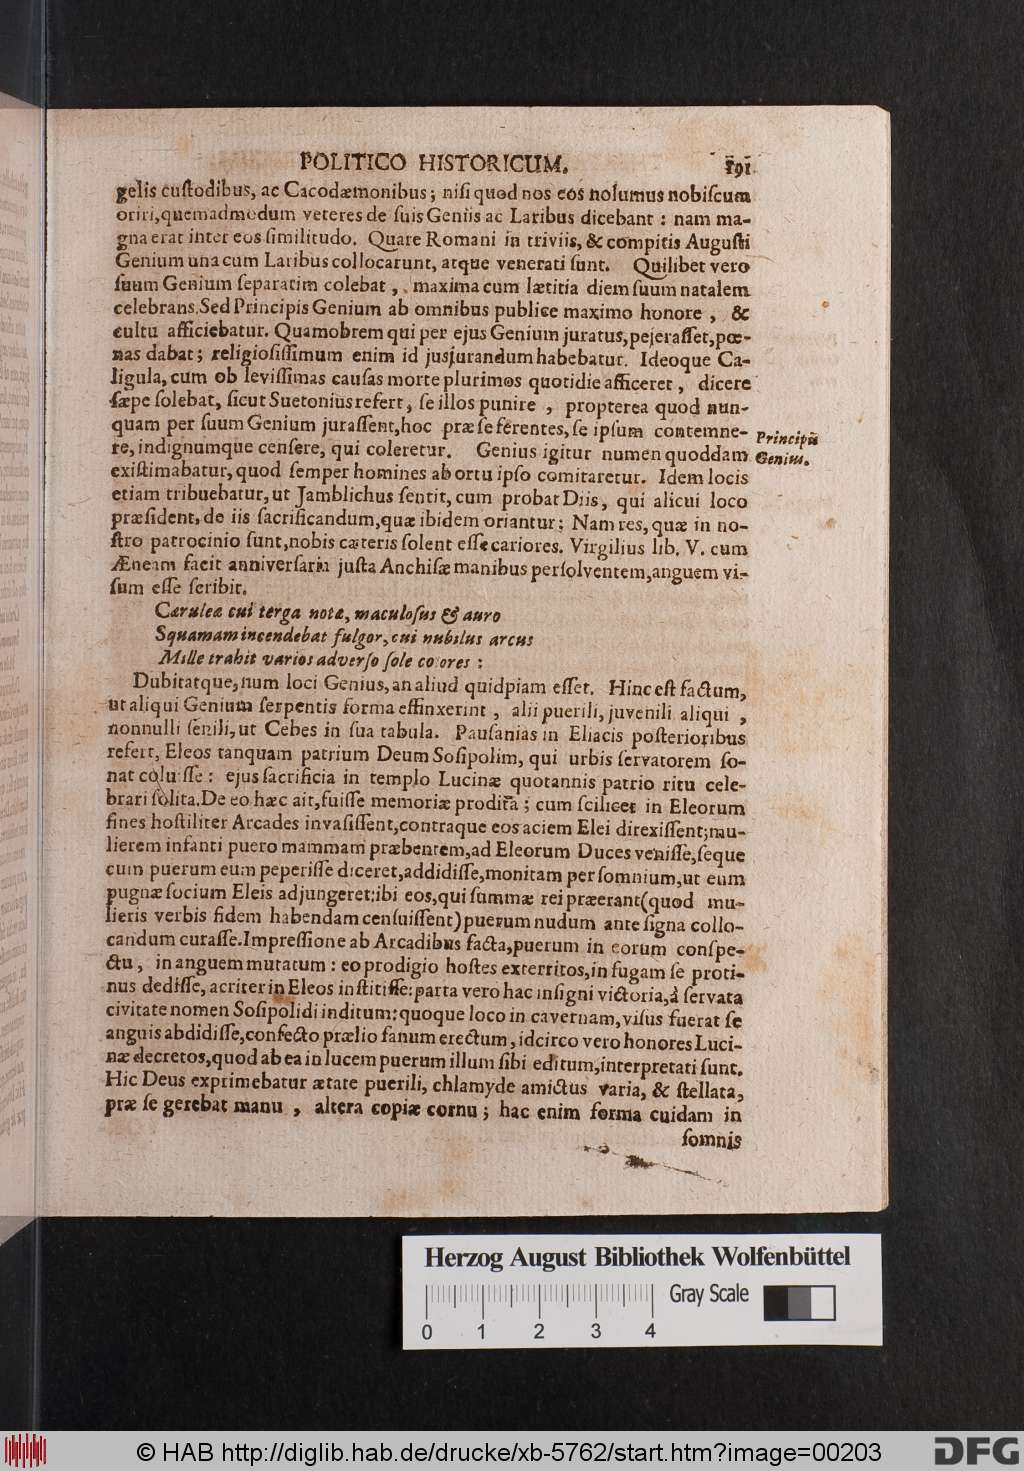 POLITICO HISTORICUM. 191
gelis cuſtodibus, ac Cacodæmonibus; niſi quod nos eos nolumus nobiſcum
oriri, quemadmodum veteres de ſuis Geniis ac Laribus dicebant : nam ma-
gna erat inter eos ſimilitudo. Quare Romani in triviis, & compitis Auguſti
Genium una cum Laribus collocarunt, atque venerati ſunt. Quilibet vero
ſuum Genium ſeparatim colebat, maxima cum lætitia diem ſuum natalem
celebrans. Sed Principis Genium ab omnibus publice maximo honore , &
cultu afficiebatur. Quamobrem qui per ejus Genium juratus, pejeraſſet, pœ-
nas dabat; religioſiſſimum enim id jusjurandum habebatur. Ideoque Ca-
ligula, cum ob leviſſimas cauſas morte plurimos quotidie afficeret , dicere
ſæpe ſolebat, ſicut Suetonius refert, ſe illos punire , propterea quod nun-
quam per ſuum Genium juraſſent, hoc præ ſe ferentes, ſe ipſum contemne-
re, indignumque cenſere, qui coleretur. Genius igitur numen quoddam
Principis
Genius.
exiſtimabatur, quod ſemper homines ab ortu ipſo comitaretur. Idem locis
etiam tribuebatur, ut Jamblichus ſentit, cum probat Diis, qui alicui loco
præſident, de iis ſacrificandum, quæ ibidem oriantur; Nam res, quæ in no-
ſtro patrocinio ſunt, nobis cæteris ſolent eſſe cariores. Virgilius lib. V. cum
Æneam facit anniverſaria juſta Anchiſæ manibus perſolventem, anguem vi-
ſum eſſe ſcribit.
Cæruleæ cui terga notæ, maculoſus & auro
Squamam incendebat fulgor, cui nubilus arcus
Mille trahit varios adverſo ſole colores :
Dubitatque, num loci Genius, an aliud quidpiam eſſet. Hinc eſt factum,
ut aliqui Genium ſerpentis forma effinxerint , alii puerili, juvenili aliqui ,
nonnulli ſenili, ut Cebes in ſua tabula. Pauſanias in Eliacis poſterioribus
refert, Eleos tanquam patrium Deum Soſipolim, qui urbis ſervatorem ſo-
nat coluiſſe : ejus ſacrificia in templo Lucinæ quotannis patrio ritu cele-
brari ſolita. De eo hæc ait, fuiſſe memoriæ prodita ; cum ſcilicet in Eleorum
fines hoſtiliter Arcades invaſiſſent, contraque eos aciem Elei direxiſſent; mu-
lierem infanti puero mammam præbentem, ad Eleorum Duces veniſſe, ſeque
cum puerum eum peperiſſe diceret, addidiſſe, monitam per ſomnium, ut eum
pugnæ ſocium Eleis adjungeret: ibi eos, qui ſummæ rei præerant (quod mu-
lieris verbis fidem habendam cenſuiſſent) puerum nudum ante ſigna collo-
candum curaſſe. Impreſſione ab Arcadibus facta, puerum in eorum conſpe-
ctu, in anguem mutatum : eo prodigio hoſtes exterritos, in fugam ſe proti-
nus dediſſe, acriter in Eleos inſtitiſſe: parta vero hac inſigni victoria, à ſervata
civitate nomen Soſipolidi inditum: quoque loco in cavernam, viſus fuerat ſe
anguis abdidiſſe, confecto prælio fanum erectum, idcirco vero honores Luci-
næ decretos, quod ab ea in lucem puerum illum ſibi editum, interpretati ſunt.
Hic Deus exprimebatur ætate puerili, chlamyde amictus varia, & ſtellata,
præ ſe gerebat manu , altera copiæ cornu ; hac enim forma cuidam in
ſomnis
Herzog August Bibliothek Wolfenbüttel
Gray Scale
0 1 2 3 4
© HAB http://diglib.hab.de/drucke/xb-5762/start.htm?image=00203
DFG